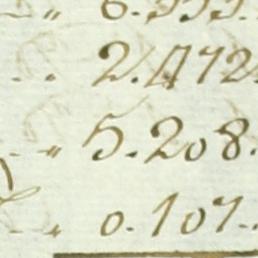 2.472.
5.208.
0.107.